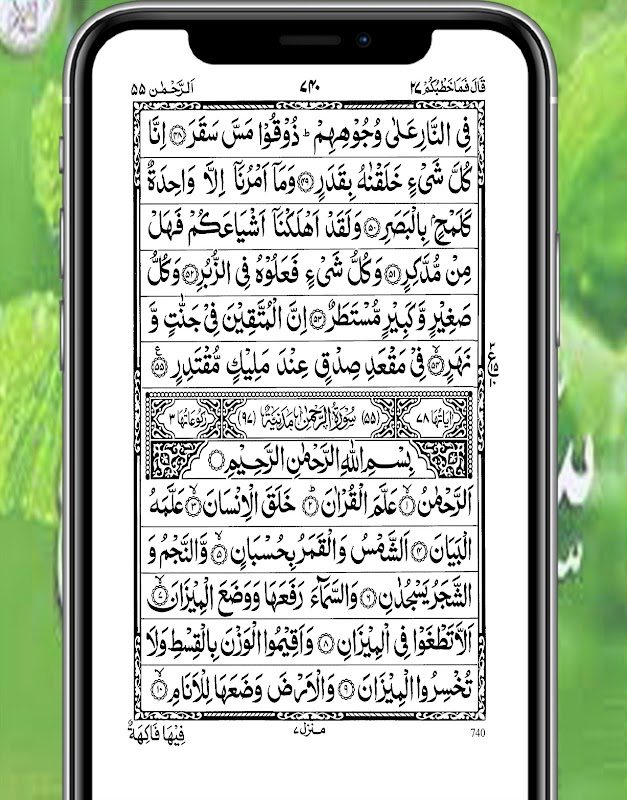 قَالَ فَمَا خَطْبُكُمْ ٢٧
٧٤٠
اَلرَّحْمٰن ٥٥
فِى النَّارِ عَلٰى وُجُوْهِهِمْ ؕ ذُوْقُوْا مَسَّ سَقَرَ ﴿٤٨﴾ اِنَّا
كُلَّ شَىْءٍ خَلَقْنٰهُ بِقَدَرٍ ﴿٤٩﴾ وَمَاۤ اَمْرُنَاۤ اِلَّا وَاحِدَةٌ
كَلَمْحٍۭ بِالْبَصَرِ ﴿٥٠﴾ وَلَقَدْ اَهْلَكْنَاۤ اَشْيَاعَكُمْ فَهَلْ
مِنْ مُّدَّكِرٍ ﴿٥١﴾ وَكُلُّ شَىْءٍ فَعَلُوْهُ فِى الزُّبُرِ ﴿٥٢﴾ وَكُلُّ
صَغِيْرٍ وَّكَبِيْرٍ مُّسْتَطَرٌ ﴿٥٣﴾ اِنَّ الْمُتَّقِيْنَ فِىْ جَنّٰتٍ وَّ
نَهَرٍ ﴿٥٤﴾ فِىْ مَقْعَدِ صِدْقٍ عِنْدَ مَلِيْكٍ مُّقْتَدِرٍ ﴿٥٥﴾
اٰيَاتُهَا ٧٨ (٥٥) سُوْرَةُ الرَّحْمٰنِ مَدَنِيَّةٌ (٩٧) رُكُوْعَاتُهَا ٣
بِسْمِ اللّٰهِ الرَّحْمٰنِ الرَّحِيْمِ
اَلرَّحْمٰنُ ﴿١﴾ عَلَّمَ الْقُرْاٰنَ ﴿٢﴾ خَلَقَ الْاِنْسَانَ ﴿٣﴾ عَلَّمَهُ
الْبَيَانَ ﴿٤﴾ اَلشَّمْسُ وَالْقَمَرُ بِحُسْبَانٍ ﴿٥﴾ وَّالنَّجْمُ وَ
الشَّجَرُ يَسْجُدٰنِ ﴿٦﴾ وَالسَّمَآءَ رَفَعَهَا وَوَضَعَ الْمِيْزَانَ ﴿٧﴾
اَلَّا تَطْغَوْا فِى الْمِيْزَانِ ﴿٨﴾ وَاَقِيْمُوا الْوَزْنَ بِالْقِسْطِ وَلَا
تُخْسِرُوا الْمِيْزَانَ ﴿٩﴾ وَالْاَرْضَ وَضَعَهَا لِلْاَنَامِ ﴿١٠﴾
فِيْهَا فَاكِهَةٌ
منزل ٧
740